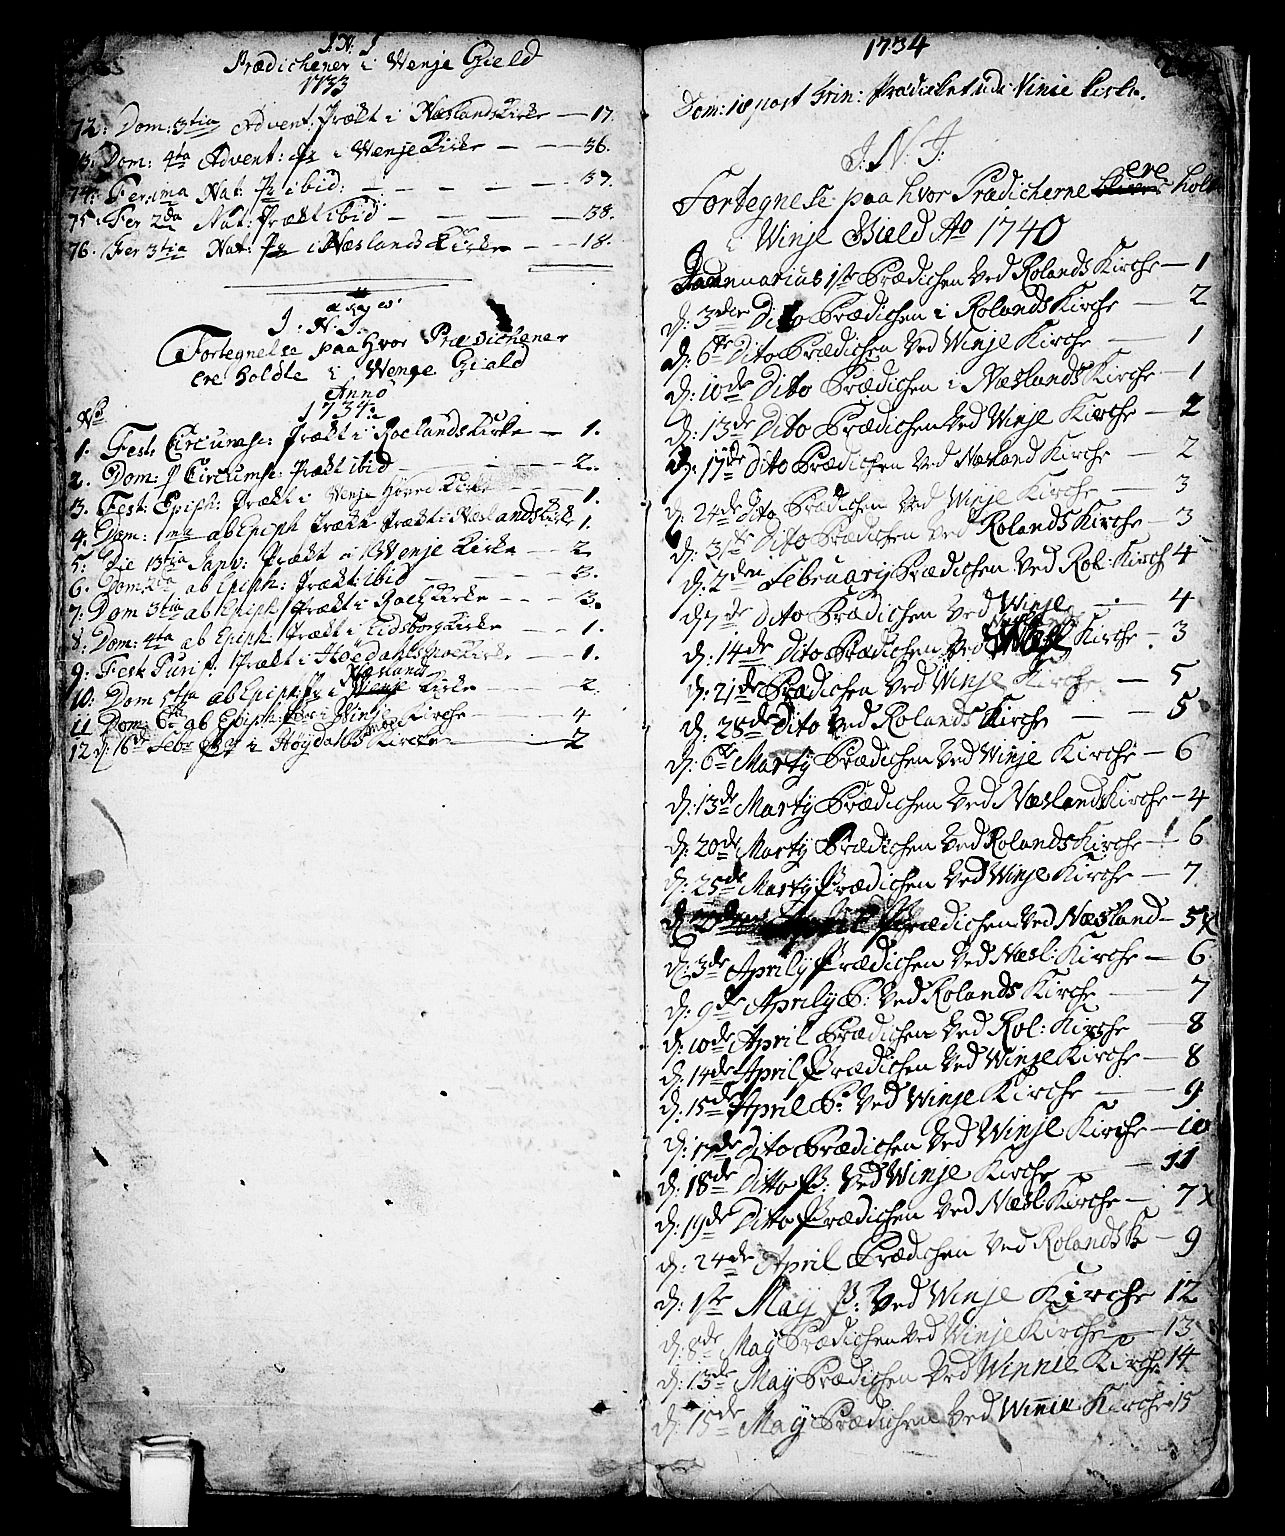 J. N. J
Prædichener i Wenje Gield
1733
72: Dom: 3tia Advent: Prækt i Næslands Kirke — 17.
73. Dom: 4ta Advent: Pr i Wenje Kirke — — 36.
74. Fer: 1ma Nat: Pr ibid: — — — 37.
75. Fer 2da Nat: Prækt ibid — — — 38.
76. Fer 3tia Nat: Pr i Næslands Kirke — — 18.
J. N. J.
Fortegnelse paa hvor Prædichener
ere holdte i Wenge Gield
Anno
1734
No
1. Fest. Circumcis: Prækt i Roelands Kirke — 1.
2. Dom: p Circumcis: Prækt ibid — — 2.
3. Fest: Epiph: Prækt i Wenje Hoved Kirke — 1.
4. Dom: 1ma ab Epiph Prækt i Næslands Kirke 1.
5. Die 13tia Janv: Prækt i Wenje Kirke — 2.
6. Dom 2da ab Epiph: Prækt: ibid — — 3.
7: Dom 3tia ab Epiph: Prækt i Roel Kirke — 3.
8. Dom: 4ta ab Epiph Prækt i Eidsborg Kirke — 1.
9. Fest Purif. Prækt i Höedahls Kirke — 1.
Næslands
10: Dom 5ta ab Epiph: Pr i Wenje Kirke — 2.
11 Dom: 6ta ab Epiph: i Winje Kirche — 4
12 d: 16de Febr i Höydahls Kirche — 2
1734
Dom: 18 post Trin: Prædiket udi Vinie Kirke.
J. N. J.
Fortegnelse paa hvor Prædicherne ere holt
i Winje Gield Ao 1740
Januarius 1ste Prædichen Ved Rolands Kirche — 1
d: 3die Dito Prædichen i Rolands Kirche — 2
d: 6te Dito Prædichen Ved Winje Kirche — 1
d: 10de Dito Prædichen i Næslands Kirche — 1
d: 13de Dito Prædichen Ved Winje Kirche — 2
d: 17de Dito Prædichen Ved Næsland Kirche — 2
d: 24de Dito Prædichen Ved Winje Kirche — 3
d: 31te Dito Prædichen Ved Rolands Kirche — 3
d: 2den February Prædichen Ved Rol: Kirch 4
d: 7de Dito Prædichen Ved Winje — 4
d: 14de Dito Prædichen Ved Kirche — 3
d: 21de Prædichen Ved Winje Kirche — 5
d: 28de Dito Ved Rolands Kirche — — 5
d: 6te Martÿ Prædichen Ved Winje Kirche — 6
d: 13de Martÿ Prædichen Ved Næslands Kirche — 4
d: 20de Martÿ Prædichen Ved Rolands Kirche — 6
d: 25de Martÿ Prædichen Ved Winje Kirche — 7
Prædichen Ved Næsland — 5
d: 3de Aprilÿ Prædichen Ved Næsl: Kirche — 6
d: 9de Aprilÿ P: Ved Rolands Kirche — 7
d: 10de April Prædichen Ved Rol: Kirche — 8
d: 14de April Prædichen Ved Winje Kirche — 8
d: 15de April P: Ved Winje Kirche — 9
d: 17de Dito Prædichen Ved Winje Kirche — 10
d: 18de Ditto P: Ved Winje Kirche — 11
d: 19de Dito Prædichen Ved Næsl: Kirche — 7
d: 24de April Prædichen Ved Rolands K — 9
d: 1ste Maÿ P: Ved Winje Kirche 12
d: 8de Maÿ Prædichen Ved Winje Kirche — 13
d: 13de Maÿ Prædichen Ved Winnie Kirche 14
d: 15de Maÿ Prædichen Ved Winnie Kirche 15